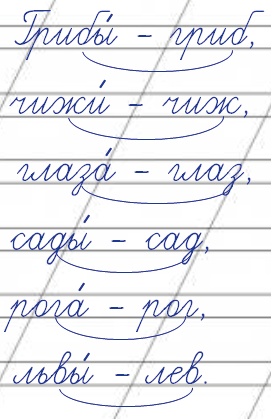 Грибы́ – гриб,
чижи́ – чиж,
глаза́ – глаз,
сады́ – сад,
рога́ – рог,
львы́ – лев.